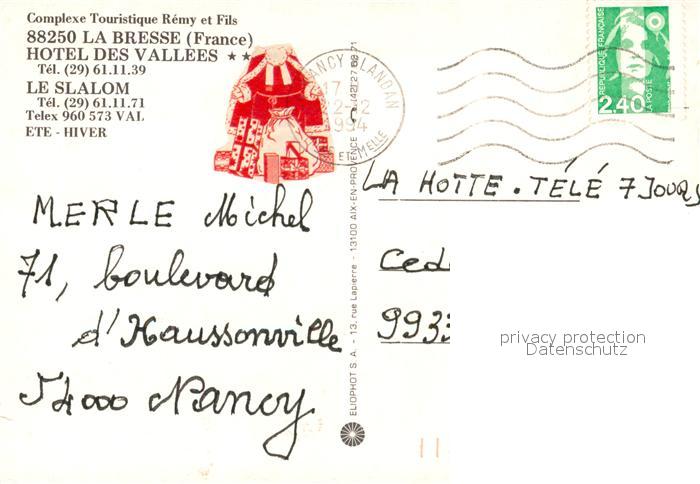 Complexe Touristique Rémy et Fils
88250 LA BRESSE (France)
HOTEL DES VALLEES ★★
Tél. (29) 61.11.39
LE SLALOM
Tél. (29) 61.11.71
Telex 960 573 VAL
ETE - HIVER
NANCY BLANDAN
17
22-12
1994
MERLE Michel
71, boulevard
d'Haussonville
54000 Nancy
ELIOPHOT S A. - 13, rue Lapierre - 13100 AIX-EN-PROVENCE
RÉPUBLIQUE FRANÇAISE
2,40
LA POSTE
LA HOTTE . TÉLÉ 7 JOURS
Ced
993
privacy protection
Datenschutz